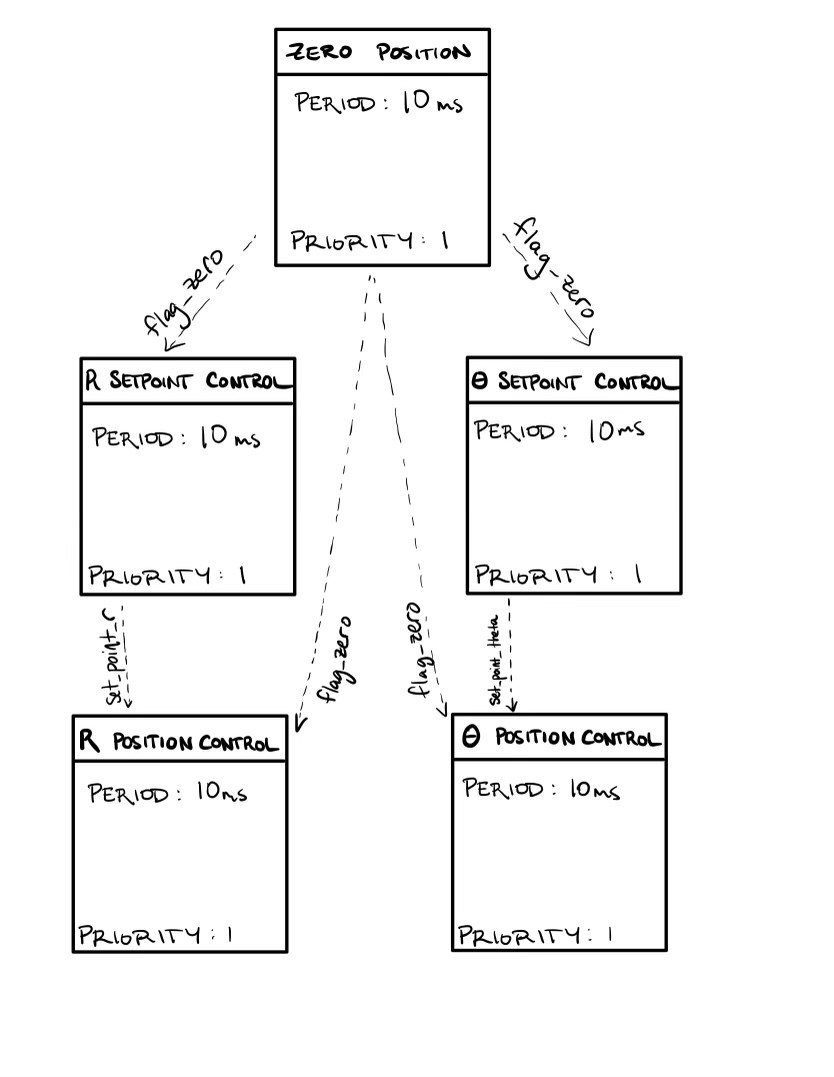 ZERO POSITION
PERIOD: 10 ms
PRIORITY: 1
flag_zero
flag_zero
R SETPOINT CONTROL
PERIOD: 10 ms
PRIORITY: 1
θ SETPOINT CONTROL
PERIOD: 10 ms
PRIORITY: 1
set_point_r
flag_zero
flag_zero
set_point_theta
R POSITION CONTROL
PERIOD: 10ms
PRIORITY: 1
θ POSITION CONTROL
PERIOD: 10ms
PRIORITY: 1